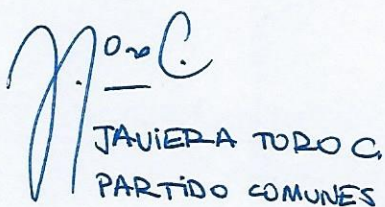 JAVIERA TORO C.
PARTIDO COMUNES